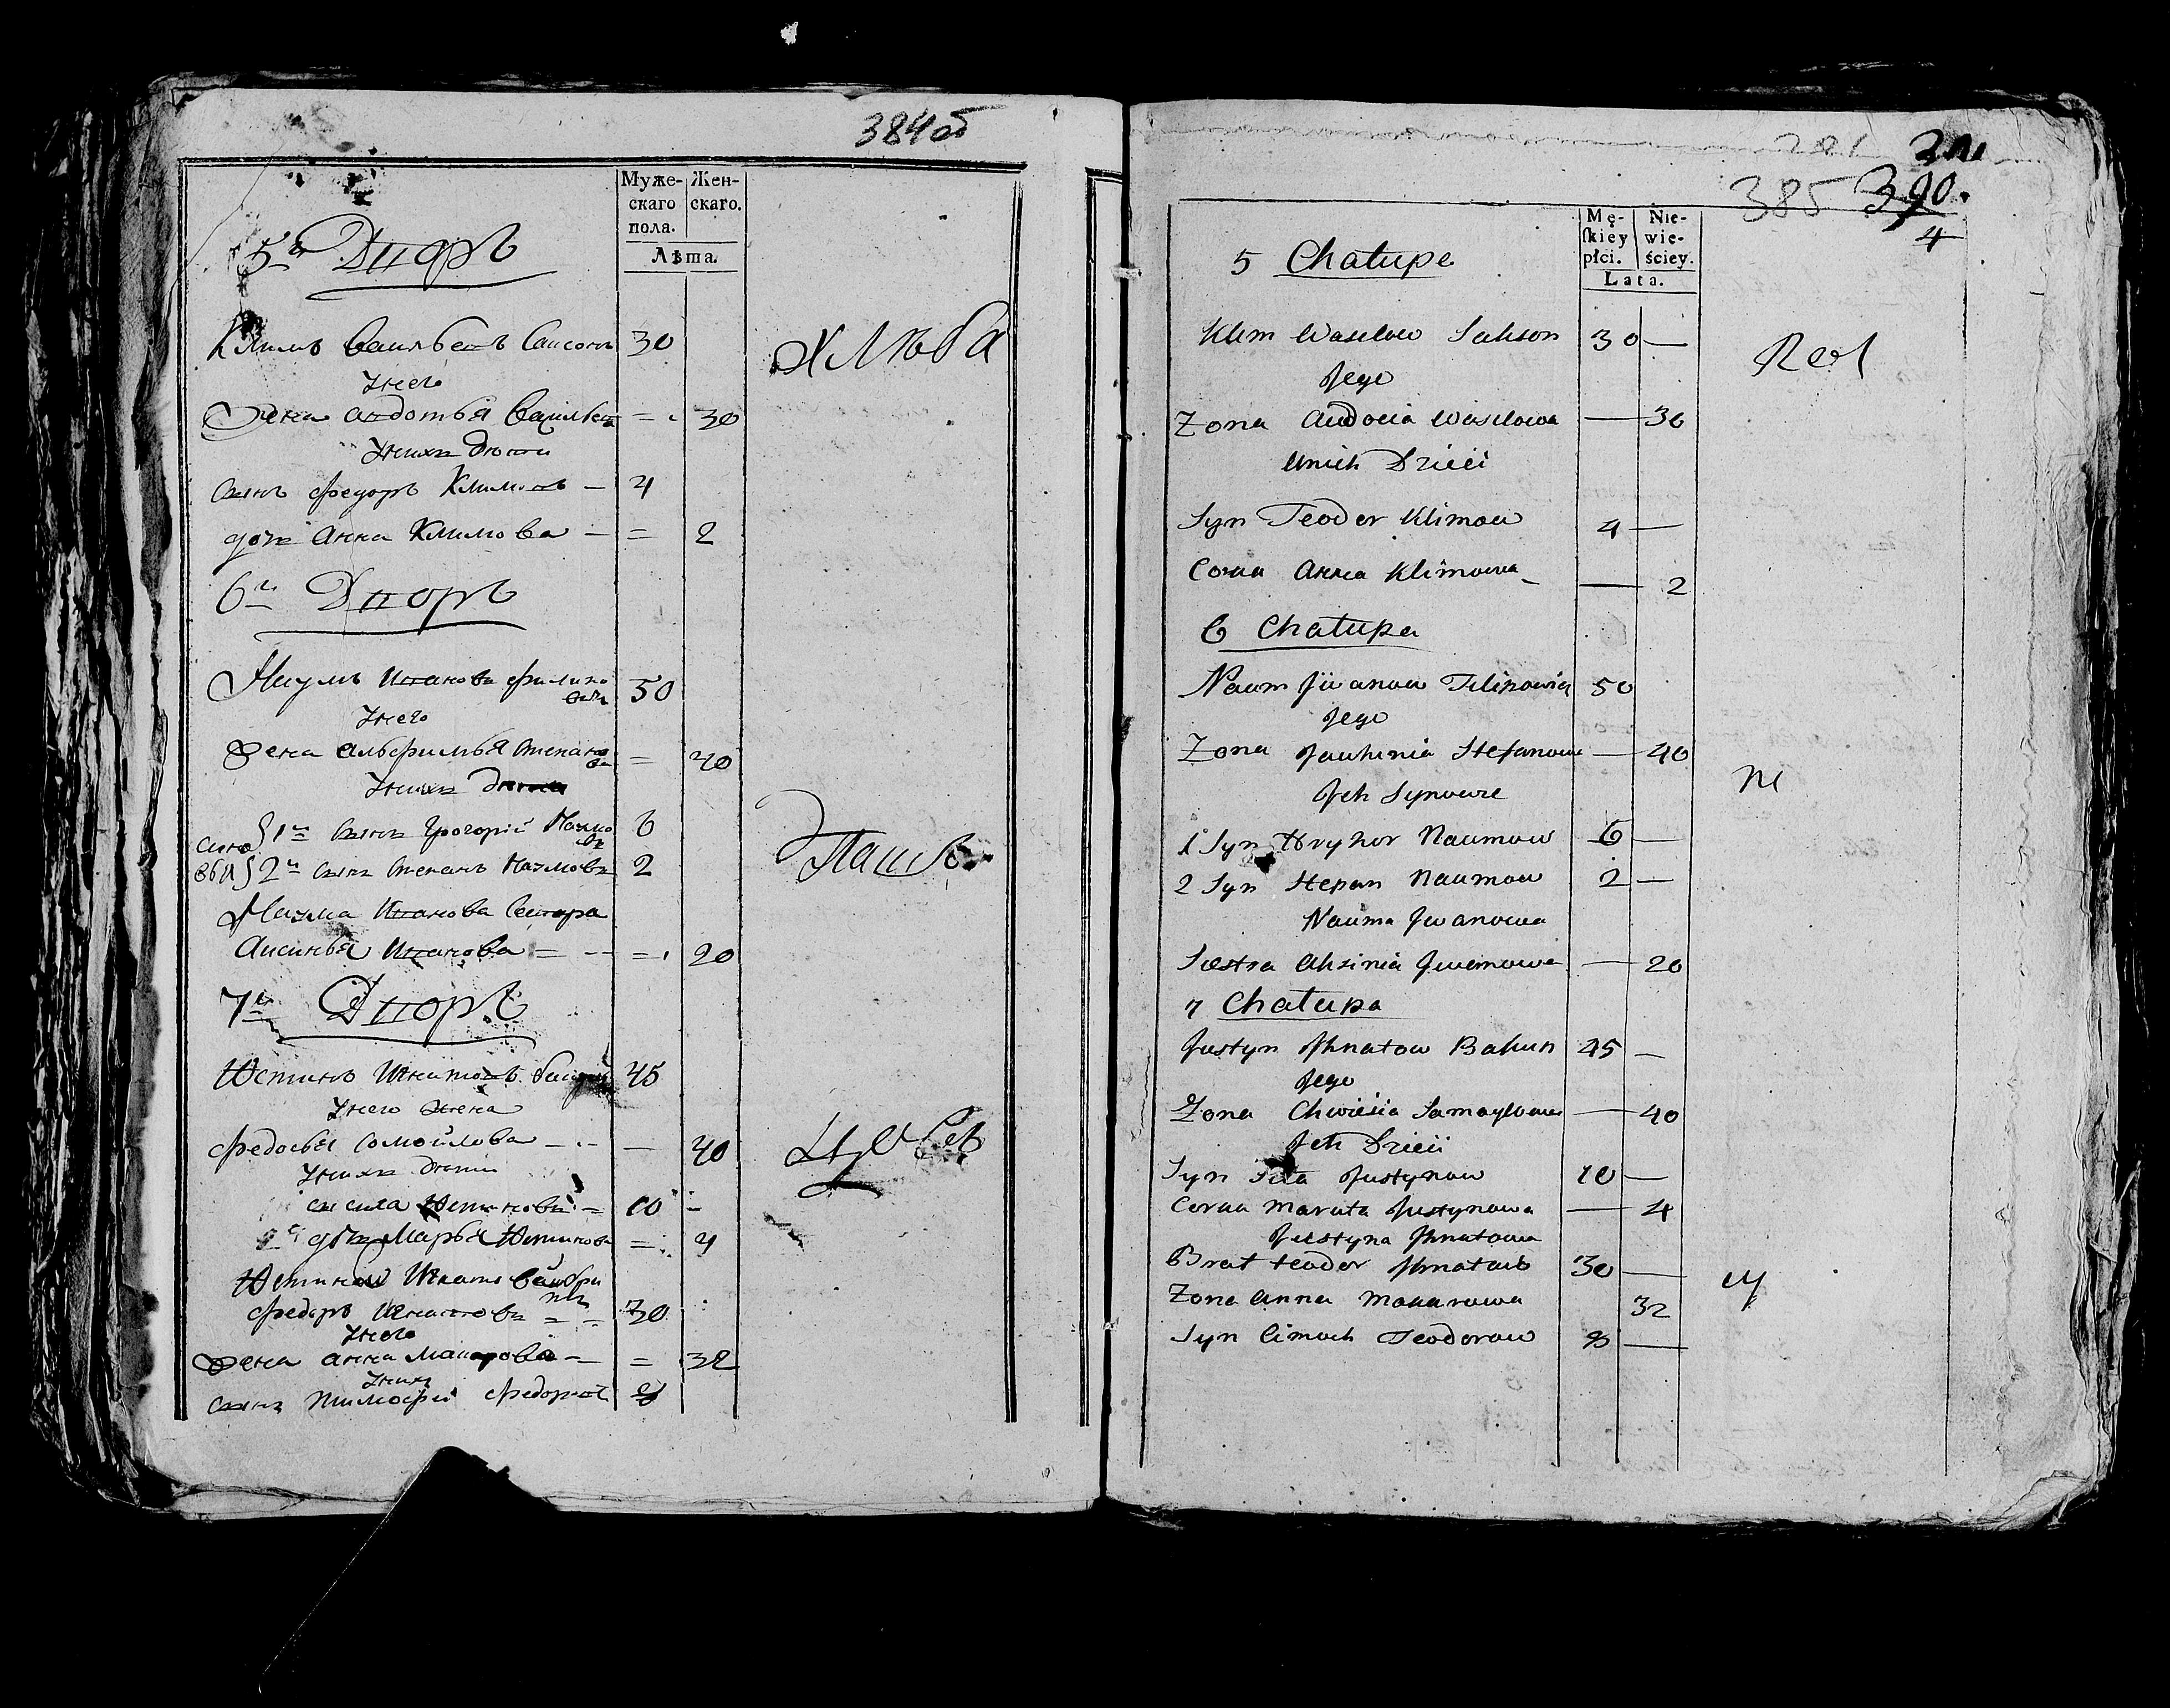 384об
Муже- Жен-
скаго скаго.
пола.
Лѣта
5й Дворъ
Климъ Васильевъ Саксонъ 30
Унего
Жена Авдотья Васильева = 30
Унихъ дѣти
Сынъ Федоръ Климовъ — 4
дочь Анна Климова — = 2
6й Дворъ
Наумъ Ивановъ Филипо
вичъ 50
Унего
Жена Степано
ва = 40
Унихъ
сыно 1й Сынъ Григорій Наумо
въ 6
вья 2й сынъ Степанъ Наумовъ 2
Наума Иванова Сестра
Аксинья Иванова = — = 20
7й Дворъ
Юстинъ Игнатовъ 45
Унего Жена
Федосья Самойлова — — 40
Унихъ дѣти
Юстиновъ = 10 —
дочь Марья Юстинова = 4
Юстина Игнатова
Федоръ Игнатовъ = = 30
Унего
Жена Анна Макарова — = 32
Унихъ
Сынъ Тимофей Федоровъ 8
хлѣба
385 390.
4
Mę- Nie-
ſkiey wie-
płci. ściey.
Lata.
5 Chałupa
Klim Wasilow Sakson 30 —
Jego
Zona Audocia Wasilowa — 30
Unich Dzieci
Syn Teodor Klimow 4 —
Corka Anna Klimowa — — 2
6 Chałupa
Naum Jwanow Filipowicz 50
Jego
Zona Stefanowa — 40
Jch Synowie
1 Syn Hryhor Naumow 6 —
2 Syn Stepan Naumow 2 —
Nauma Jwanowa
Siestra Aksinia Jwanowa — 20
7 Chałupa
Justyn Jhnatow Bakun 45 —
Jego
Zona Chwiesia Samoylowa — 40
Jch Dzieci
Syn Siła Justynow 10 —
Corka Maruta Justynowa — 4
Justyna Jhnatowa
Brat teodor Jhnatow 30 —
Zona Anna Makarowa 32
Syn Cimoch Teodorow 8 —